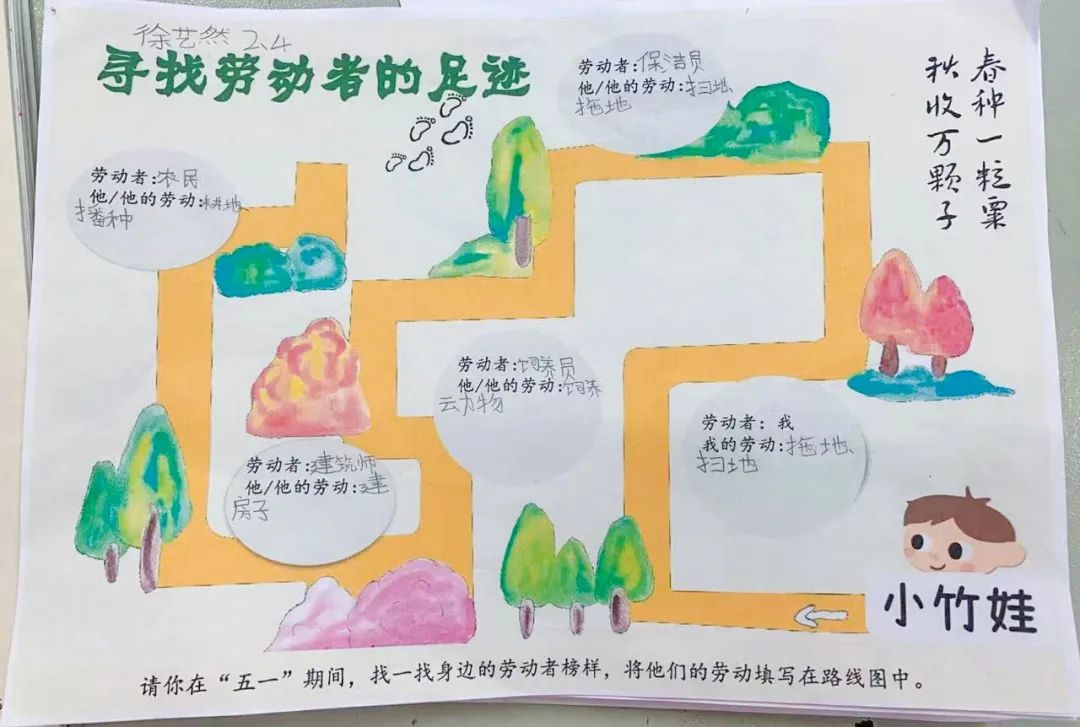 徐艺然 2.4
寻找劳动者的足迹
春种一粒粟
秋收万颗子
劳动者:保洁员
他/他的劳动:扫地、
拖地
劳动者:农民
他/他的劳动:耕地、
播种
劳动者:饲养员
他/他的劳动:饲养
动物
劳动者:我
我的劳动:拖地、
扫地
劳动者:建筑师
他/他的劳动:建
房子
小竹娃
请你在“五一”期间，找一找身边的劳动者榜样，将他们的劳动填写在路线图中。